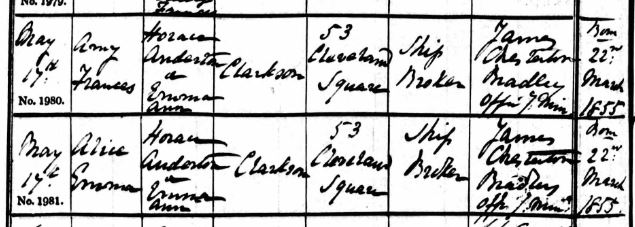 No. 1979.
May
17th
No. 1980.
Amy
Frances
Horace
Anderton
&
Emma
Ann
Clarkson
53
Cleveland
Square
Ship
Broker
James
Chesterton
Bradley
Offg Min
Born
22nd
March
1855
May
17th
No. 1981.
Alice
Emma
Horace
Anderton
&
Emma
Ann
Clarkson
53
Cleveland
Square
Ship
Broker
James
Chesterton
Bradley
Offg Minr
Born
22nd
March
1855.